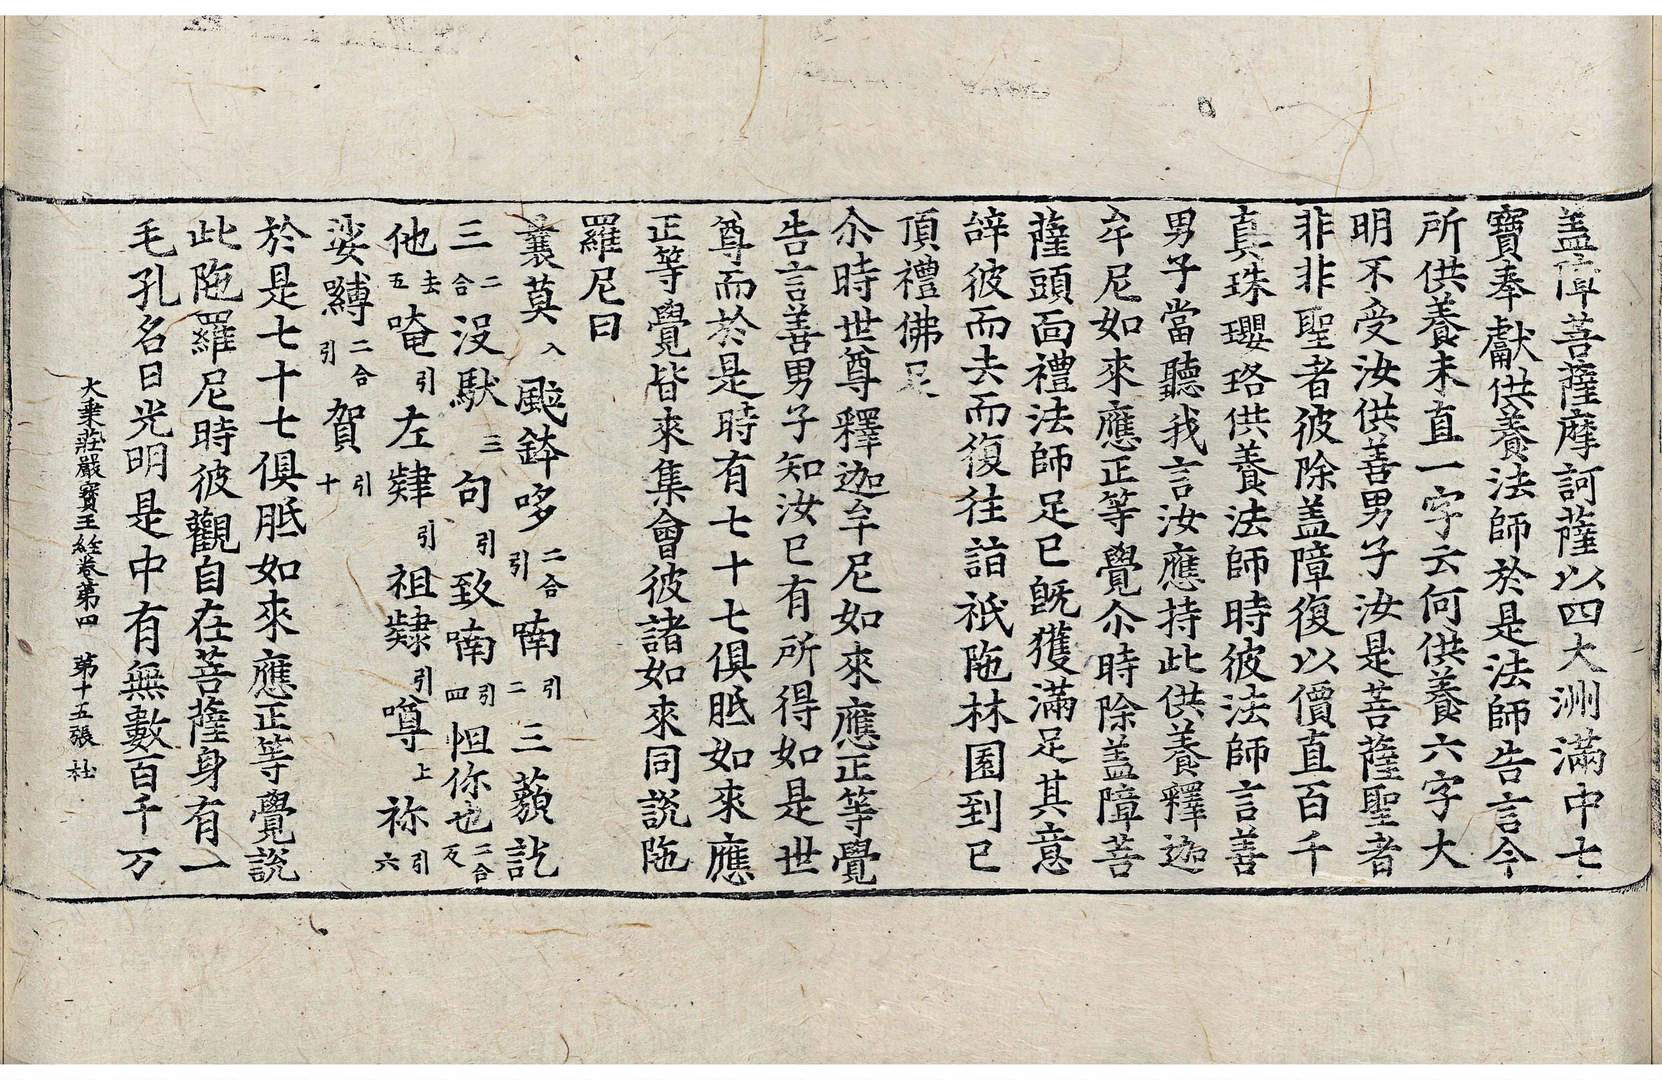 盖障菩薩摩訶薩以四大洲滿中七
寶奉獻供養法師於是法師告言今
所供養未直一字云何供養六字大
明不受汝供善男子汝是菩薩聖者
非非聖者彼除盖障復以價直百千
真珠瓔珞供養法師時彼法師言善
男子當聽我言汝應持此供養釋迦
牟尼如來應正等覺尒時除盖障菩
薩頭面禮法師足已旣獲滿足其意
辝彼而去而復往詣祇陁林園到已
頂禮佛足
尒時世尊釋迦牟尼如來應正等覺
告言善男子知汝已有所得如是世
尊而於是時有七十七俱胝如來應
正等覺皆來集會彼諸如來同說陁
羅尼曰
曩莫入颰鉢哆二合引喃引二三藐訖
三二合没馱三句引致喃引四怛你也二合反
他去五唵引左肄引祖隸引噂上祢引六
娑嚩二合引賀引十
於是七十七俱胝如來應正等覺說
此陁羅尼時彼觀自在菩薩身有一
毛孔名日光明是中有無數百千万
大乗莊嚴寶王經卷第四 第十五張 杜